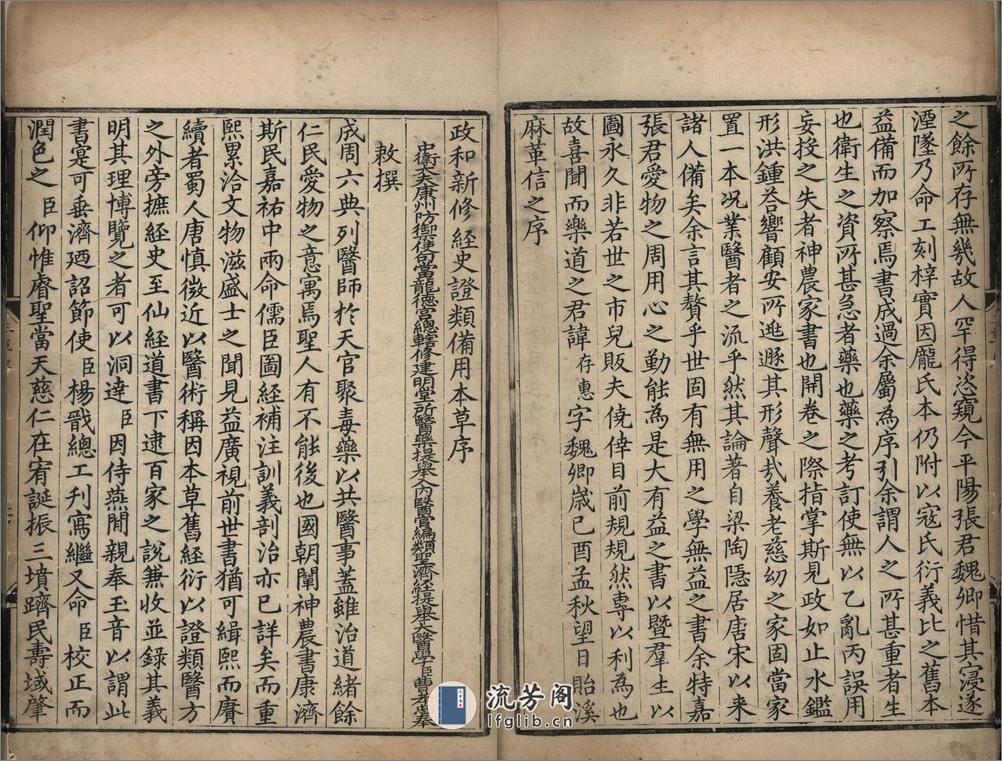 之餘所存無幾故人罕得恣窺今平陽張君魏卿惜其寖遂
湮墜乃命工刻梓實因龐氏本仍附以寇氏衍義比之舊本
益備而加察焉書成過余屬為序引余謂人之所甚重者生
也衛生之資所甚急者藥也藥之考訂使無以乙亂丙誤用
妄投之失者神農家書也開卷之際指掌斯見政如止水鑑
形洪鍾荅響顧安所逃遯其形聲哉養老慈幼之家固當家
置一本况業醫者之流乎然其論著自梁陶隱居唐宋以來
諸人備矣余言其贅乎世固有無用之學無益之書余特嘉
張君愛物之周用心之勤能為是大有益之書以暨羣生以
圖永久非若世之市兒販夫僥倖目前規規然專以利為也
故喜聞而樂道之君諱存惠字魏卿歲己酉孟秋望日貽溪
麻革信之序
政和新修經史證類備用本草序
中衛大夫康州防禦使句當龍德宮總轄修建明堂所醫藥提舉入內醫官編類聖濟經提舉太醫學臣曹孝忠奉
敕撰
成周六典列醫師於天官聚毒藥以共醫事蓋雖治道緒餘
仁民愛物之意寓焉聖人有不能後也國朝闡神農書康濟
斯民嘉祐中兩命儒臣圖經補注訓義剖治亦已詳矣而重
熙累洽文物滋盛士之聞見益廣視前世書猶可緝熙而賡
續者蜀人唐慎微近以醫術稱因本草舊經衍以證類醫方
之外旁摭經史至仙經道書下逮百家之說兼收並錄其義
明其理博覽之者可以洞達臣因侍燕閒親奉玉音以謂此
書寔可垂濟廼詔節使臣楊戩總工刊寫繼又命臣校正而
潤色之臣仰惟睿聖當天慈仁在宥誕振三墳躋民壽域肇
流芳阁
lfglib.cn